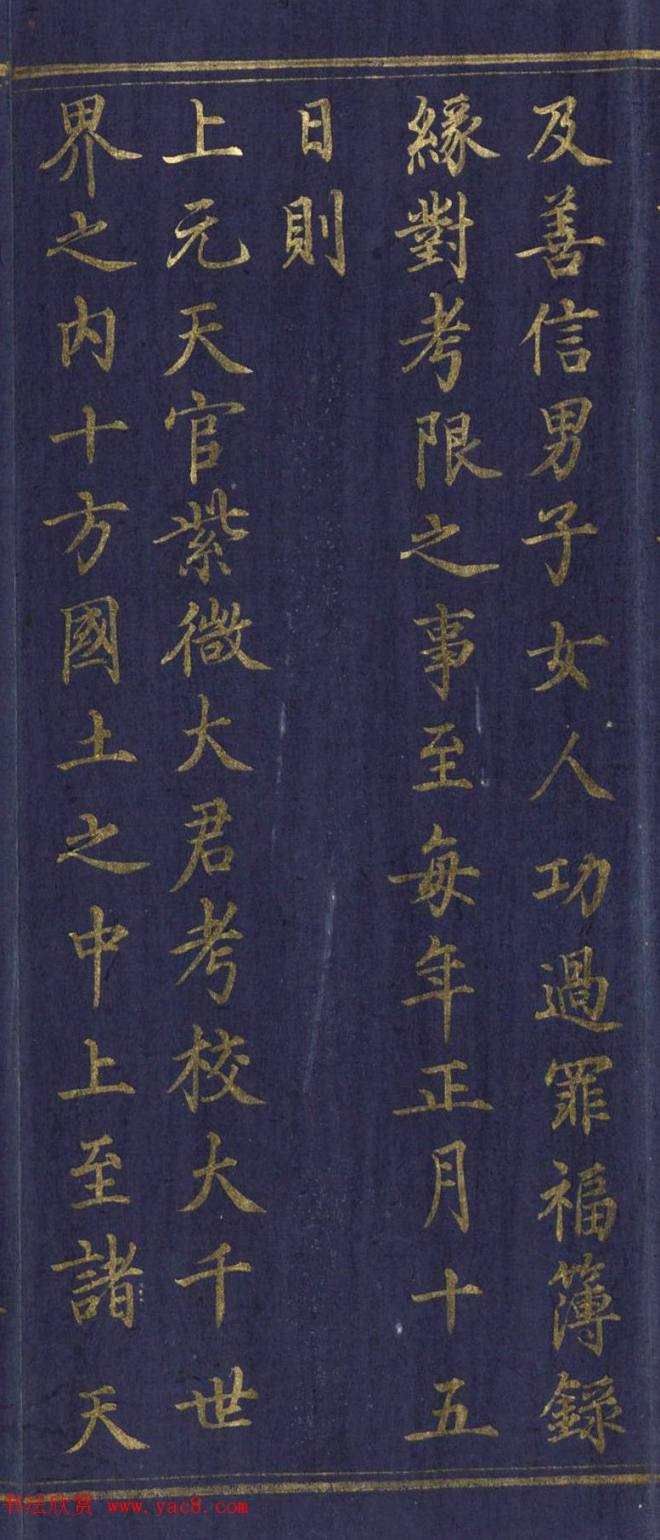 及善信男子女人功過罪福簿錄
緣對考限之事至每年正月十五
日則
上元天官紫微大君考校大千世
界之内十方國土之中上至諸天
书法欣赏 www.yac8.com